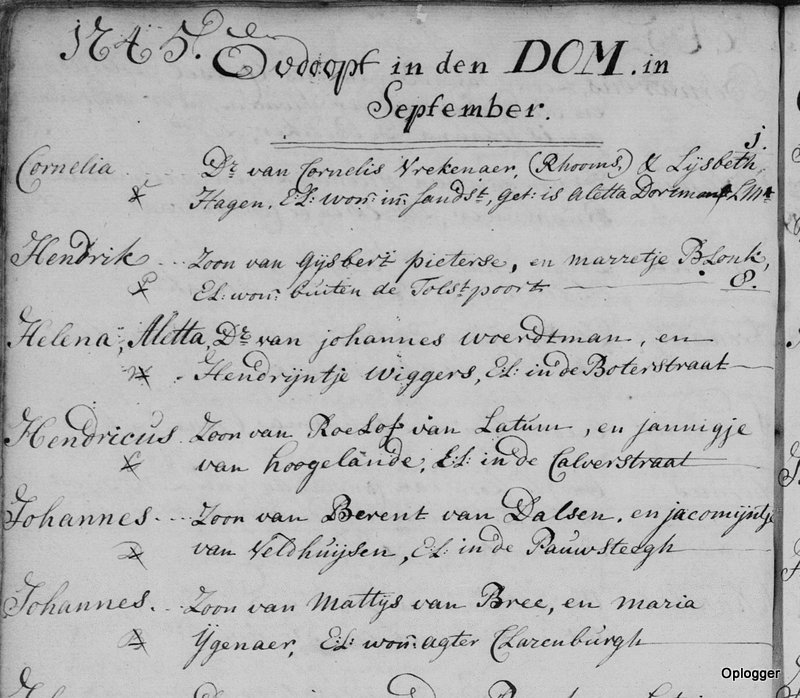 1745. Gedoopt in den DOM. in
September.
1.
Cornelia Dr. van Cornelis Vrekenaer, (Rhooms) & Lijsbeth
Hagen, El: won: in Sandst, get: is Aletta Dortmont
Hendrik ... Zoon van Gijsbert pieterse, en marretje BLonk,
El: won: buiten de Tolstpoort 8.
Helena, Aletta, Dr. van johannes woerdtman, en
Hendrijntje wiggers, El: in de Boterstraat
Hendricus. Zoon van RoeLof van Latum, en jannigje
van hoogelande, El: in de Calverstraat
Johannes ... Zoon van Berent van Dalsen, en jacomijntje
van Veldhuijsen, El: in de Pauwsteegh
Johannes. Zoon van Mattijs van Bree, en maria
Ygenaer, El: won: agter CLarenburgh
Oplogger